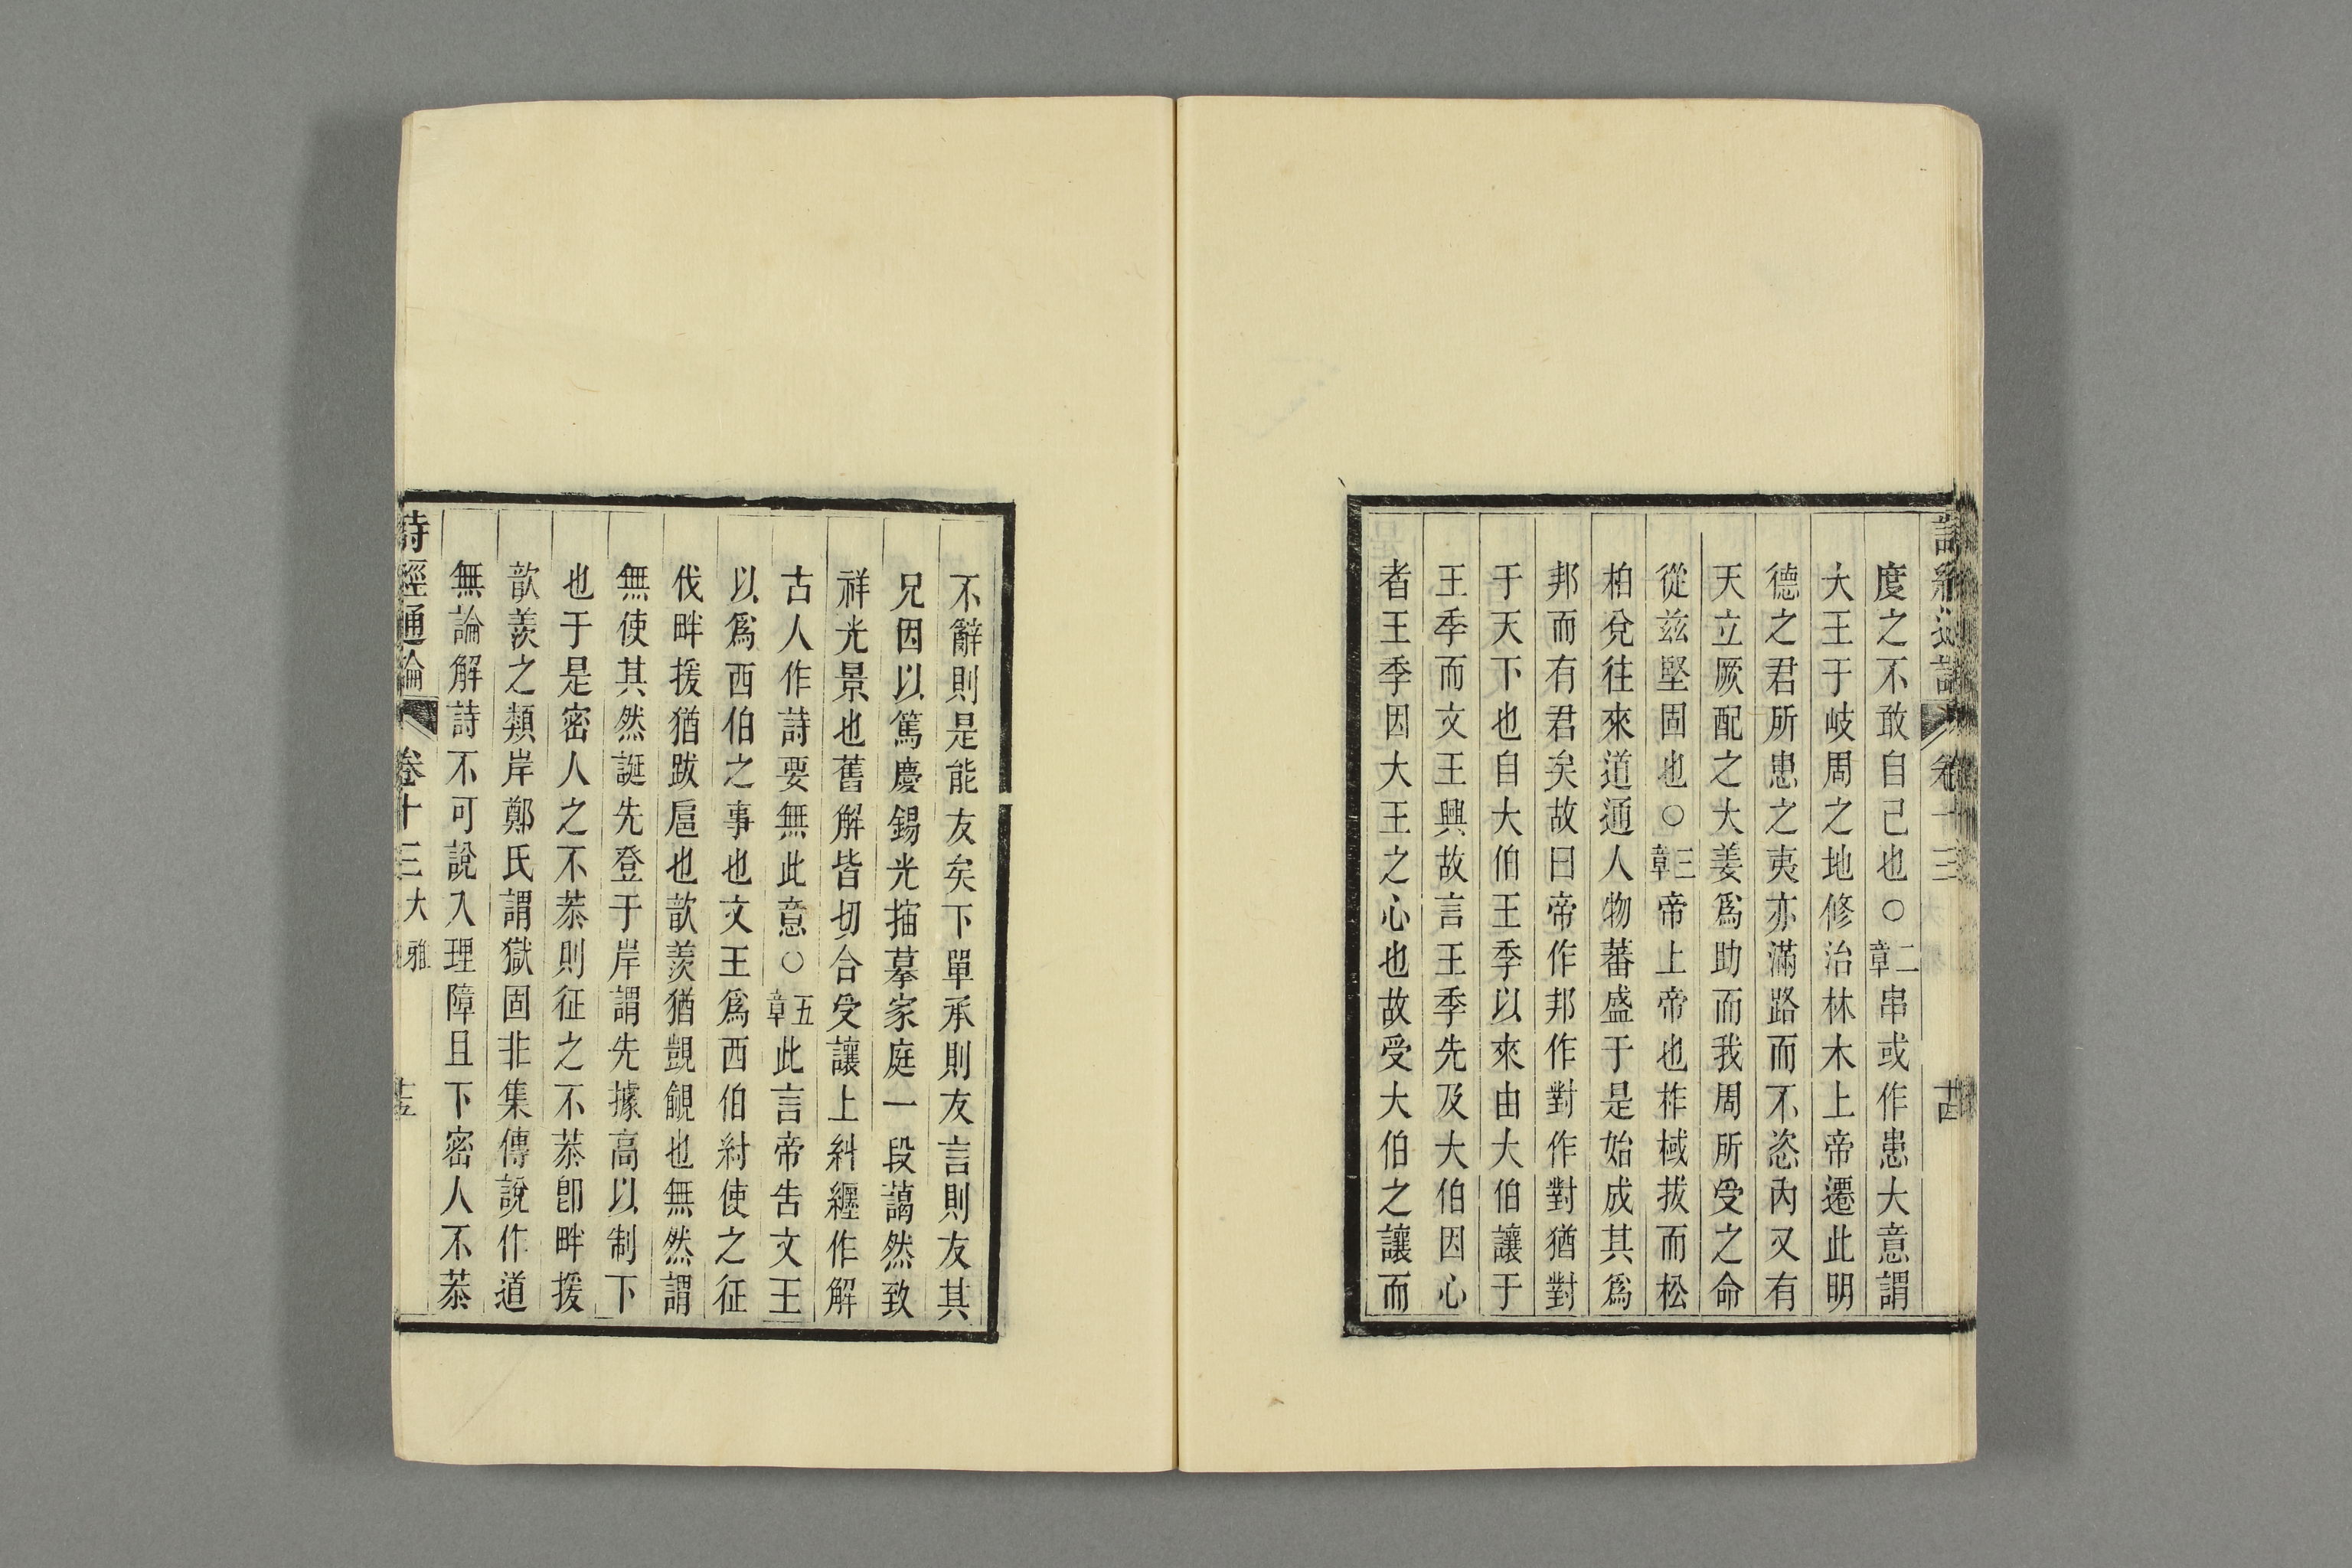 度之不敢自己也○二章串或作患大意謂
大王于岐周之地修治林木上帝遷此明
德之君所患之夷亦滿路而不恣內又有
天立厥配之大姜爲助而我周所受之命
從茲堅固也○三章帝上帝也柞棫拔而松
柏兌往來道通人物蕃盛于是始成其爲
邦而有君矣故曰帝作邦作對作對猶對
于天下也自大伯王季以來由大伯讓于
王季而文王興故言王季先及大伯因心
者王季因大王之心也故受大伯之讓而
不辭則是能友矣下單承則友言則友其
兄因以篤慶錫光描摹家庭一段藹然致
祥光景也舊解皆切合受讓上糾纏作解
古人作詩要無此意○五章此言帝告文王
以爲西伯之事也文王爲西伯紂使之征
伐畔援猶跋扈也歆羨猶覬覦也無然謂
無使其然誕先登于岸謂先據高以制下
也于是密人之不恭則征之不恭卽畔援
歆羨之類岸鄭氏謂獄固非集傳說作道
無論解詩不可說入理障且下密人不恭
詩經通論 卷十三 大雅 廿五